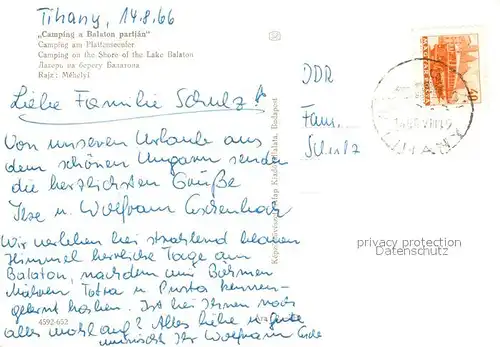 Tihany, 14.8.66
„Camping a Balaton partján"
Camping am Plattenseeufer
Camping on the Shore of the Lake Balaton
Лагерь на берегу Балатона
Rajz: Méhelyi
Liebe Familie Schulz!
Von unseren Urlaub aus
dem schönen Ungarn senden
die herzlichsten Grüße
Ilse u. Wolfram
Wir verleben bei strahlend blauen
Himmel herrliche Tage am
Balaton, nachdem wir Böhmen
Mähren Tatra u. Pusta kennen-
gelernt haben. Ist bei Ihnen noch
alles wohlauf? Alles Liebe u. Gute
wünscht Ihr Wolfram
4592-652
Képzőművészeti Alap Kiadóvállalata, Budapest
DDR
Fam.
Schulz
MAGYAR POSTA
TIHANY
privacy protection
Datenschutz